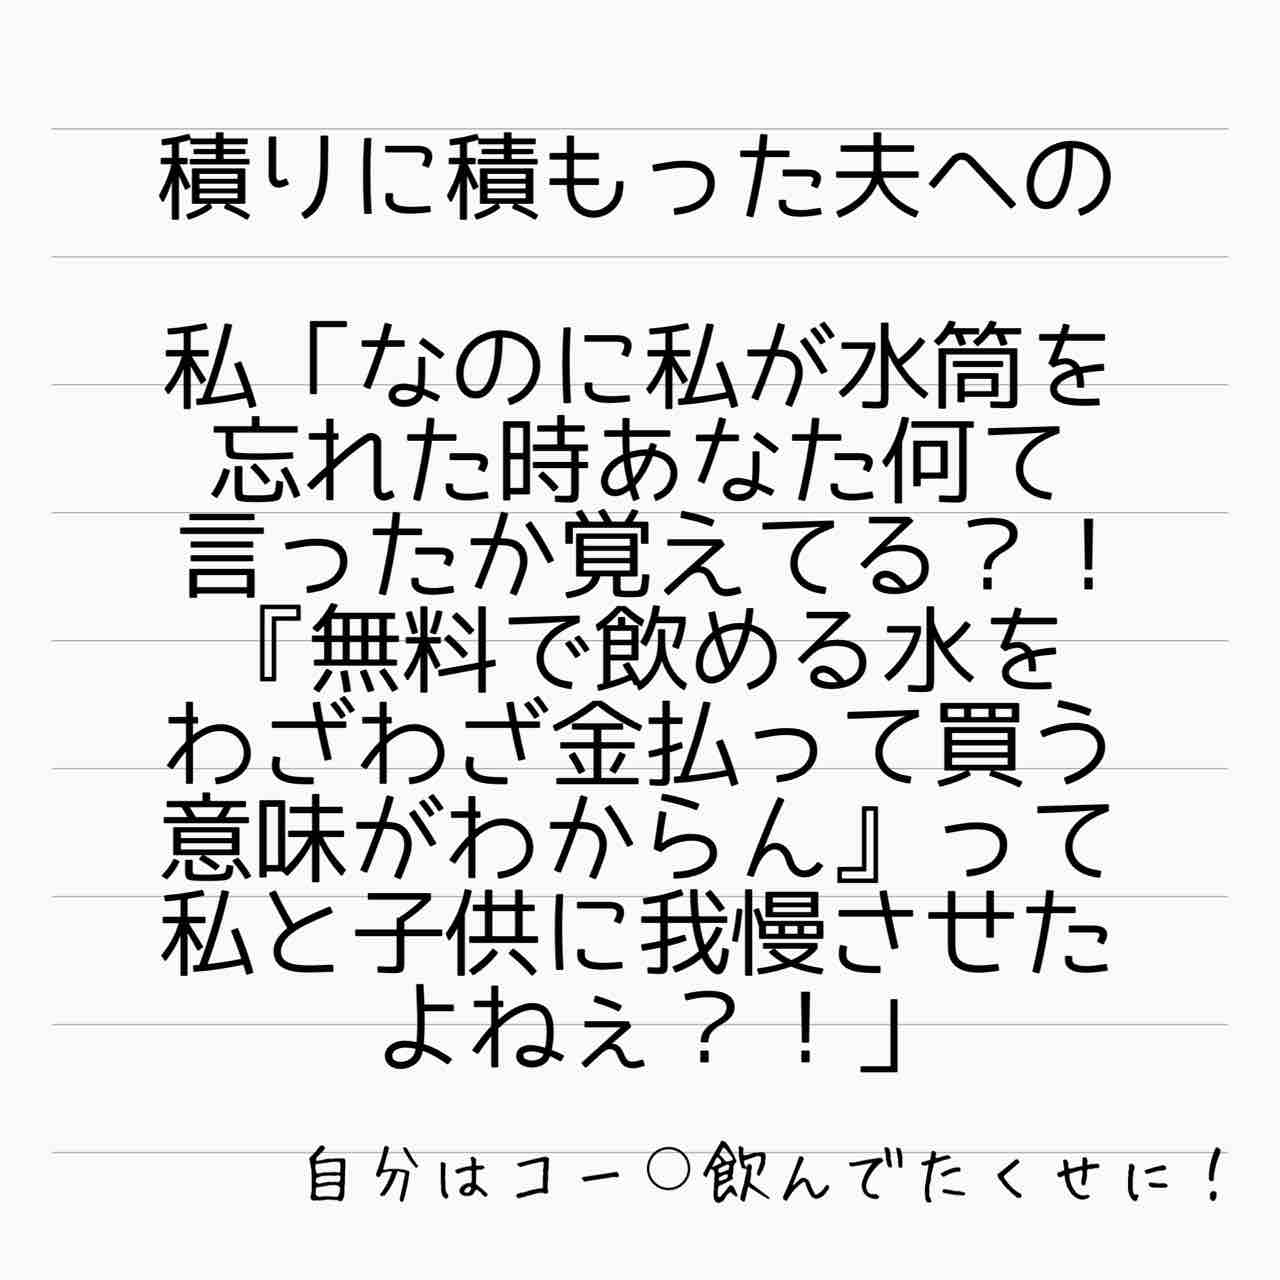 積りに積もった夫への
私「なのに私が水筒を
忘れた時あなた何て
言ったか覚えてる？！
『無料で飲める水を
わざわざ金払って買う
意味がわからん』って
私と子供に我慢させた
よねぇ？！」
自分はコー○飲んでたくせに！